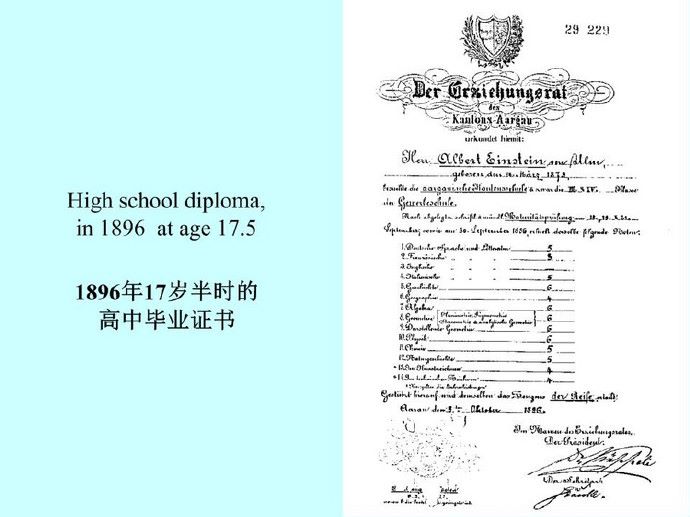 High school diploma,
in 1896 at age 17.5
1896年17岁半时的
高中毕业证书
29 229
Der Erziehungsrat
des
Kantons Aargau
urkundet hiermit:
Herr Albert Einstein von Ulm,
geboren den 14. März 1879,
besuchte die aargauische Kantonsschule & zwar die III. & IV. Klasse
der Gewerbeschule.
Nach abgelegter schriftl. & mündl. Maturitätsprüfung
September, sowie am 30. September 1896, erhielt derselbe folgende Noten:
1. Deutsche Sprache und Litteratur 5
2. Französische " " " 3
3. Englische " " "
4. Italienische " " " 5
5. Geschichte 6
6. Geographie 4
7. Algebra 6
8. Geometrie 6
9. Darstellende Geometrie 6
10. Physik 6
11. Chemie 5
12. Naturgeschichte 5
13. Im Kunstzeichnen 4
14. Im technischen Zeichnen 4
Gestützt hierauf wird demselben das Zeugnis der Reife erteilt.
Aarau den 3ten Oktober 1896.
Im Namen des Erziehungsrates,
Der Präsident:
Der Sekretär: